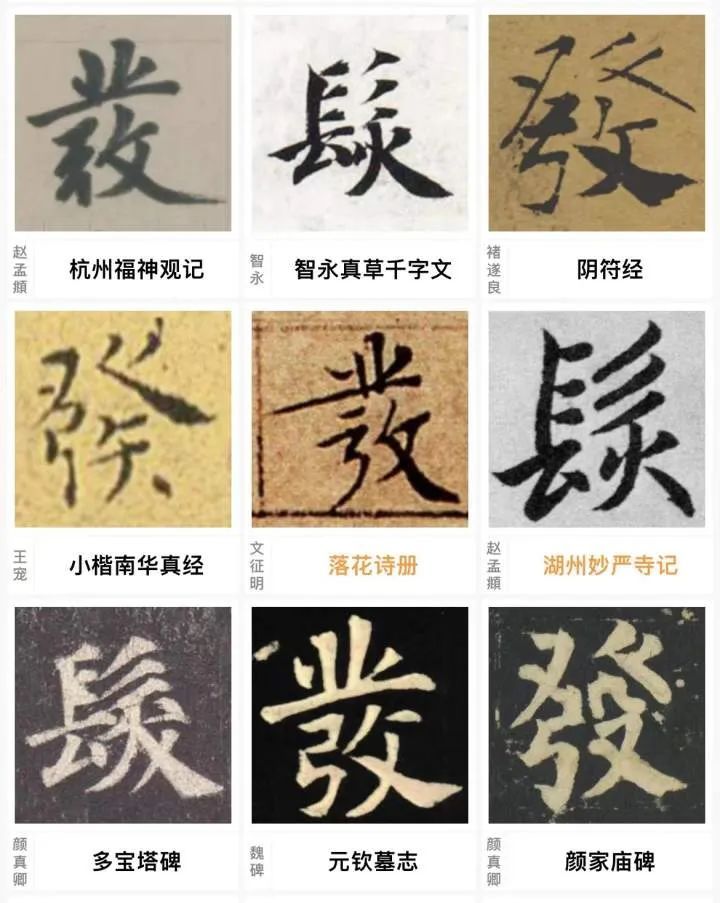 發 髮 發
赵孟頫 杭州福神观记
智永 智永真草千字文
褚遂良 阴符经
發 發 髮
王宠 小楷南华真经
文征明 落花诗册
赵孟頫 湖州妙严寺记
髮 發 發
颜真卿 多宝塔碑
魏碑 元钦墓志
颜真卿 颜家庙碑